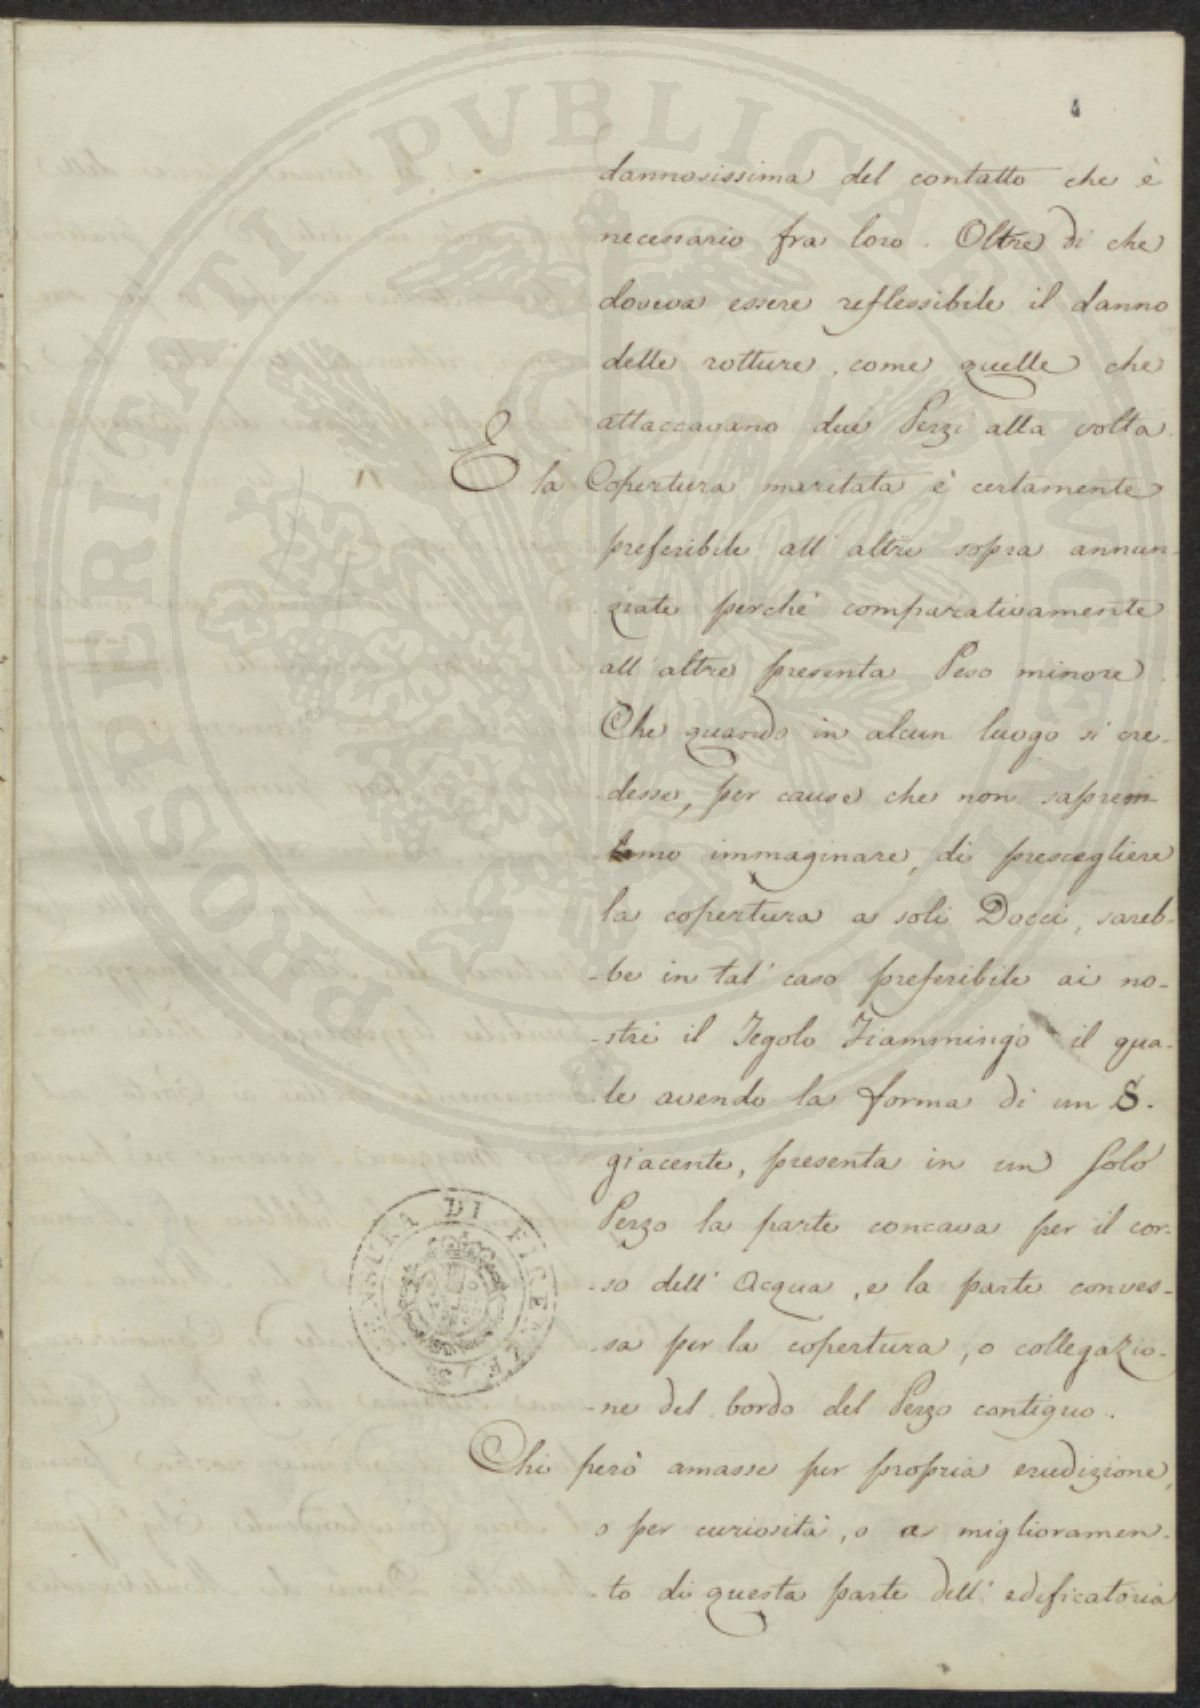 4
dannosissima del contatto che è
necessario fra loro. Oltre di che
doveva essere reflessibile il danno
delle rotture, come quelle che
attaccavano due Pezzi alla volta.
E la Copertura maritata è certamente
preferibile all'altre sopra annun-
ziate perchè comparativamente
all'altre presenta Peso minore.
Che quando in alcun luogo si cre-
desse, per cause che non saprem-
-mo immaginare, di prescegliere
la copertura a soli Docci, sareb-
-be in tal caso preferibile ai no-
-stri il Tegolo Fiammingo il qua-
-le avendo la forma di un S.
giacente, presenta in un Solo
Pezzo la parte concava per il cor-
-so dell'Acqua, e la parte conves-
-sa per la copertura, o collegazio-
-ne del bordo del Pezzo contiguo.
Chi però amasse per propria erudizione,
o per curiosità, o a miglioramen-
-to di questa parte dell'edificatoria
PROSPERITATI PUBLICAE AUGENDAE
CENSURA DI FIRENZE